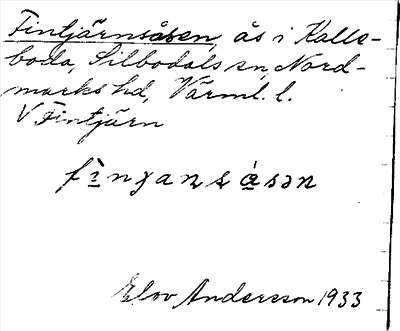 Fintjärnsåsen, ås i Kalle-
boda, Silbodals sn, Nord-
marks hd, Värml. l.
V Fintjärn
fì̠nʒansá̠sən
Elov Andersson 1933